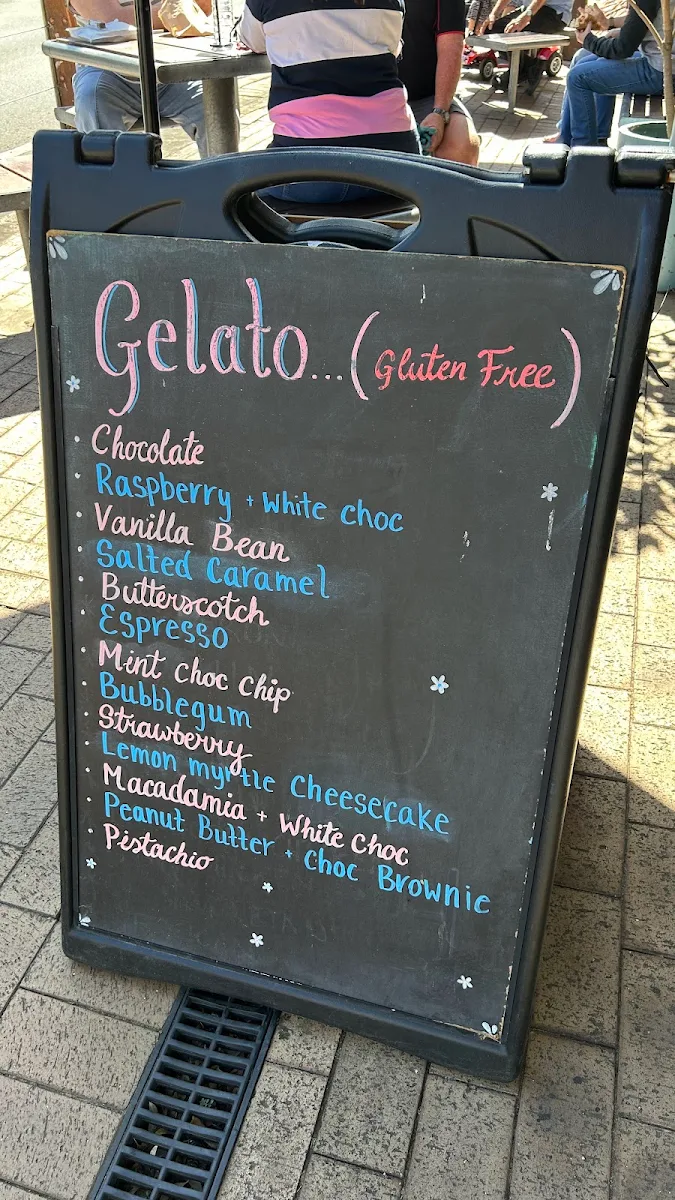 Gelato...(Gluten Free)
· Chocolate
· Raspberry + White choc
· Vanilla Bean
· Salted Caramel
· Butterscotch
· Espresso
· Mint choc chip
· Bubblegum
· Strawberry
· Lemon myrtle Cheesecake
· Macadamia + White choc
· Peanut Butter + Choc Brownie
· Pistachio